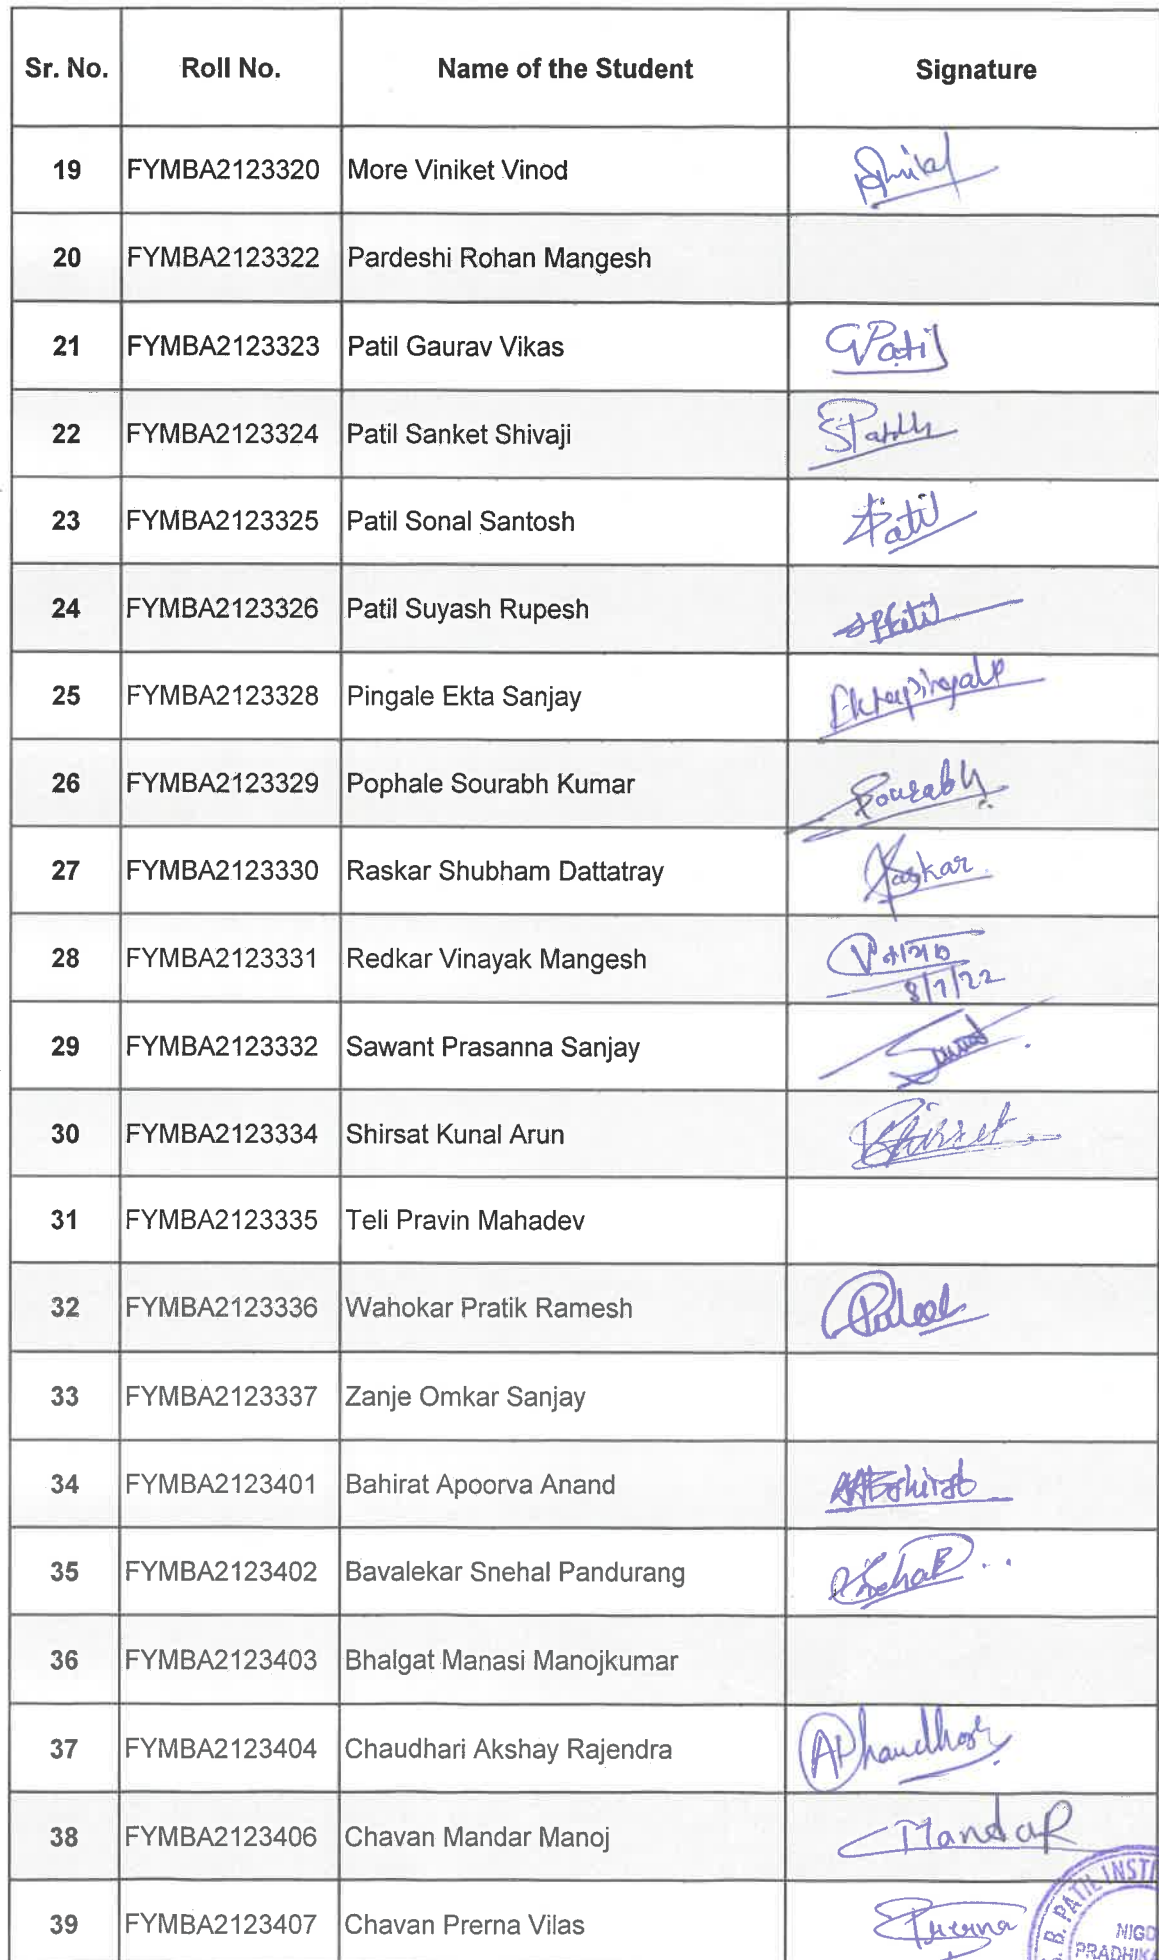 Sr. No. Roll No. Name of the Student Signature
19 FYMBA2123320 More Viniket Vinod
20 FYMBA2123322 Pardeshi Rohan Mangesh
21 FYMBA2123323 Patil Gaurav Vikas GPatil
22 FYMBA2123324 Patil Sanket Shivaji
23 FYMBA2123325 Patil Sonal Santosh Patil
24 FYMBA2123326 Patil Suyash Rupesh
25 FYMBA2123328 Pingale Ekta Sanjay
26 FYMBA2123329 Pophale Sourabh Kumar Sourabh
27 FYMBA2123330 Raskar Shubham Dattatray Raskar
28 FYMBA2123331 Redkar Vinayak Mangesh
8/7/22
29 FYMBA2123332 Sawant Prasanna Sanjay
30 FYMBA2123334 Shirsat Kunal Arun
31 FYMBA2123335 Teli Pravin Mahadev
32 FYMBA2123336 Wahokar Pratik Ramesh
33 FYMBA2123337 Zanje Omkar Sanjay
34 FYMBA2123401 Bahirat Apoorva Anand
35 FYMBA2123402 Bavalekar Snehal Pandurang
36 FYMBA2123403 Bhalgat Manasi Manojkumar
37 FYMBA2123404 Chaudhari Akshay Rajendra
38 FYMBA2123406 Chavan Mandar Manoj Mandar
39 FYMBA2123407 Chavan Prerna Vilas Prerna
B. PATIL INSTI
NIGD
PRADHIK